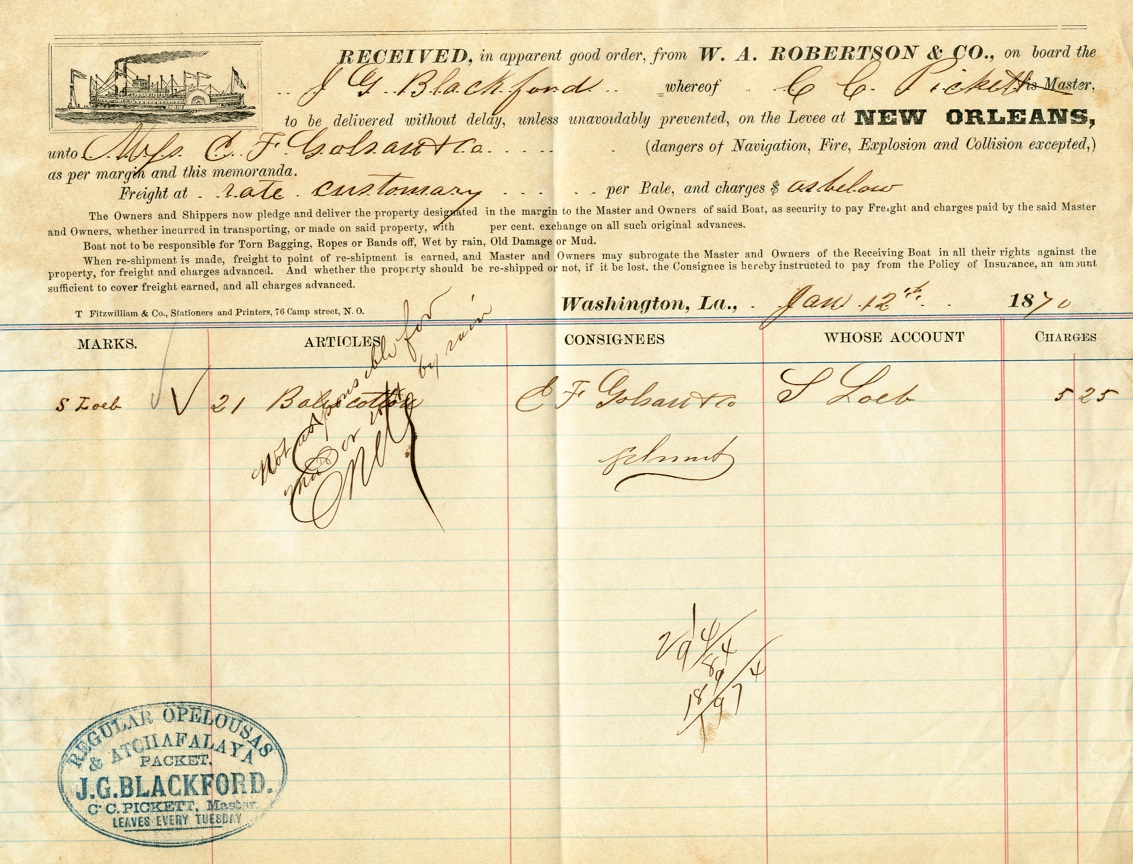 RECEIVED, in apparent good order, from W. A. ROBERTSON & CO., on board the
J G. Blackford whereof C C. Pickett is Master,
to be delivered without delay, unless unavoidably prevented, on the Levee at NEW ORLEANS,
unto Mess E. F. Golsan & Co. (dangers of Navigation, Fire, Explosion and Collision excepted,)
as per margin and this memoranda.
Freight at rate customary per Bale, and charges $ as below
The Owners and Shippers now pledge and deliver the property designated in the margin to the Master and Owners of said Boat, as security to pay Freight and charges paid by the said Master
and Owners, whether incurred in transporting, or made on said property, with per cent. exchange on all such original advances.
Boat not to be responsible for Torn Bagging, Ropes or Bands off, Wet by rain, Old Damage or Mud.
When re-shipment is made, freight to point of re-shipment is earned, and Master and Owners may subrogate the Master and Owners of the Receiving Boat in all their rights against the
property, for freight and charges advanced. And whether the property should be re-shipped or not, if it be lost, the Consignee is hereby instructed to pay from the Policy of Insurance, an amount
sufficient to cover freight earned, and all charges advanced.
Washington, La., Jan 12th 1870
T Fitzwilliam & Co., Stationers and Printers, 76 Camp street, N. O.
MARKS. ARTICLES CONSIGNEES WHOSE ACCOUNT CHARGES
S Loeb 21 Bales cotton E F Golsan & co S Loeb 5 25
Not responsible for
mud or wet by rain
REGULAR OPELOUSAS
& ATCHAFALAYA
PACKET,
J.G. BLACKFORD.
C. C. PICKETT, Master.
LEAVES EVERY TUESDAY